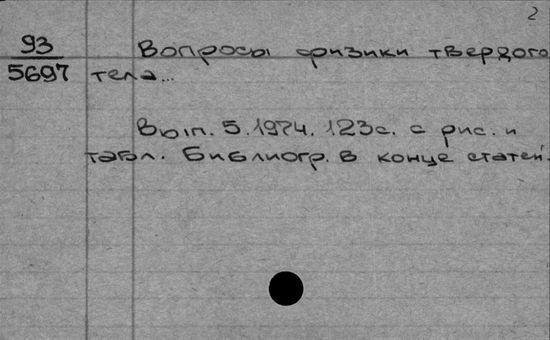 2
93 Вопросы физики твердого
5697 тела...
Вып. 5. 1974. 123с. с рис. и
табл. Библиогр. в конце статей.